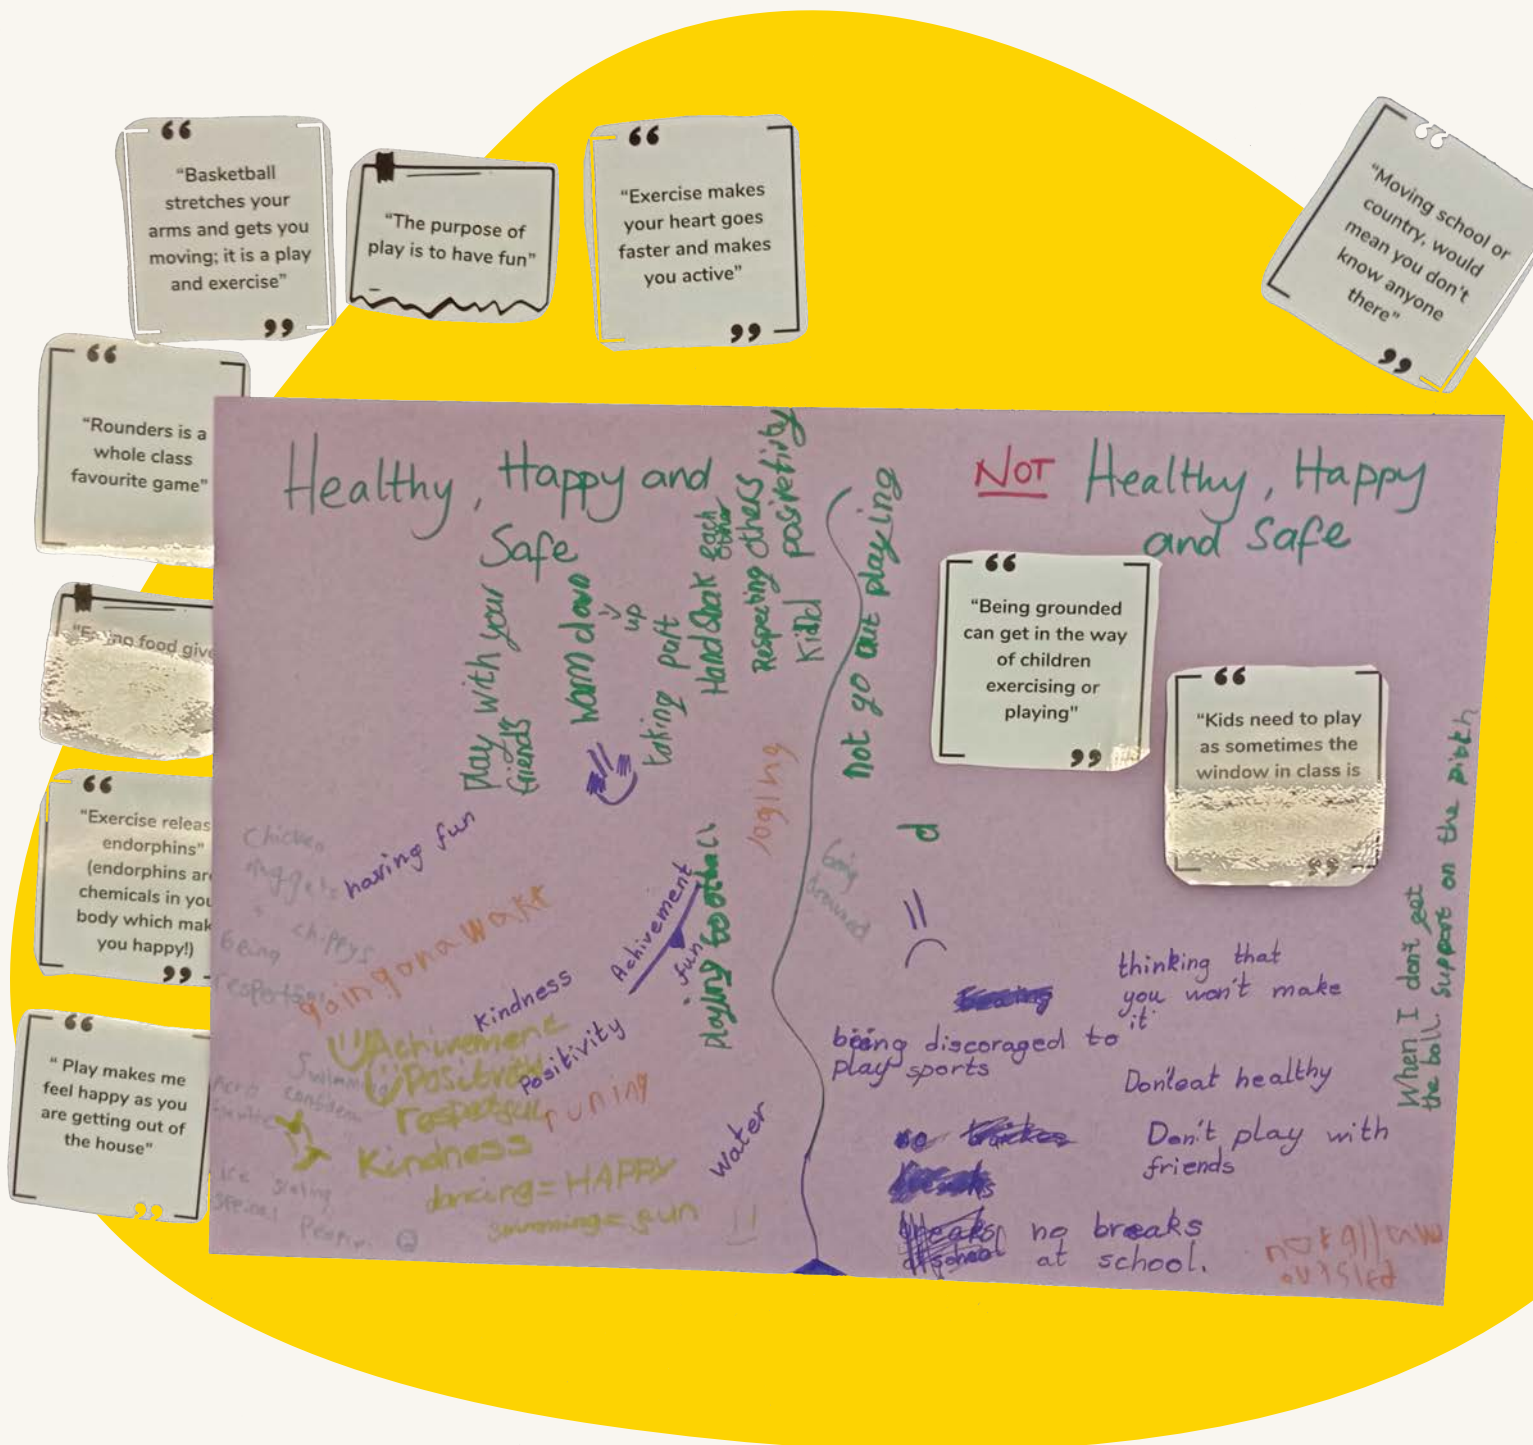 “Basketball
stretches your
arms and gets you
moving; it is a play
and exercise”
“The purpose of
play is to have fun”
“Exercise makes
your heart goes
faster and makes
you active”
“Moving school or
country, would
mean you don't
know anyone
there”
“Rounders is a
whole class
favourite game”
food give
“Exercise releas
endorphins”
(endorphins are
chemicals in you
body which mak
you happy!)
“ Play makes me
feel happy as you
are getting out of
the house”
Healthy, Happy and
Safe
play with your
friends
worm down
up
taking part
Hand Shak each
other
Respecting others
Kidd posivetivity
joging
having fun
Chicken
nuggets
+ chippys
being
going on a walk
Achivement
fun
playing football
Kindness
Positivity
Achivement
Positivity
respectful
Kindness
runing
Swimming
dancing = HAPPY
swimming = fun
Water
ice skating
NOT Healthy, Happy
and Safe
not go out playing
“Being grounded
can get in the way
of children
exercising or
playing”
“Kids need to play
as sometimes the
window in class is
d
being
thinking that
you won't make
it
being discoraged to
play sports
Don't eat healthy
Don't play with
friends
no breaks
at school.
When I don't get
the ball. Support on the pitch